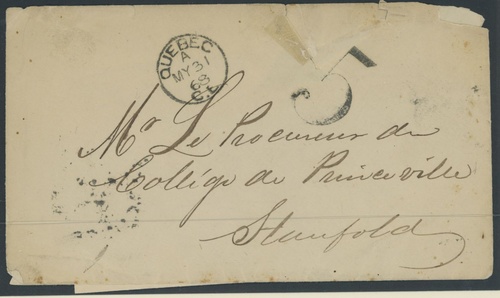 QUEBEC
A
MY 31
68
C.E.
5
Mr Le Procureur du
Collége de Princeville
Stanfold